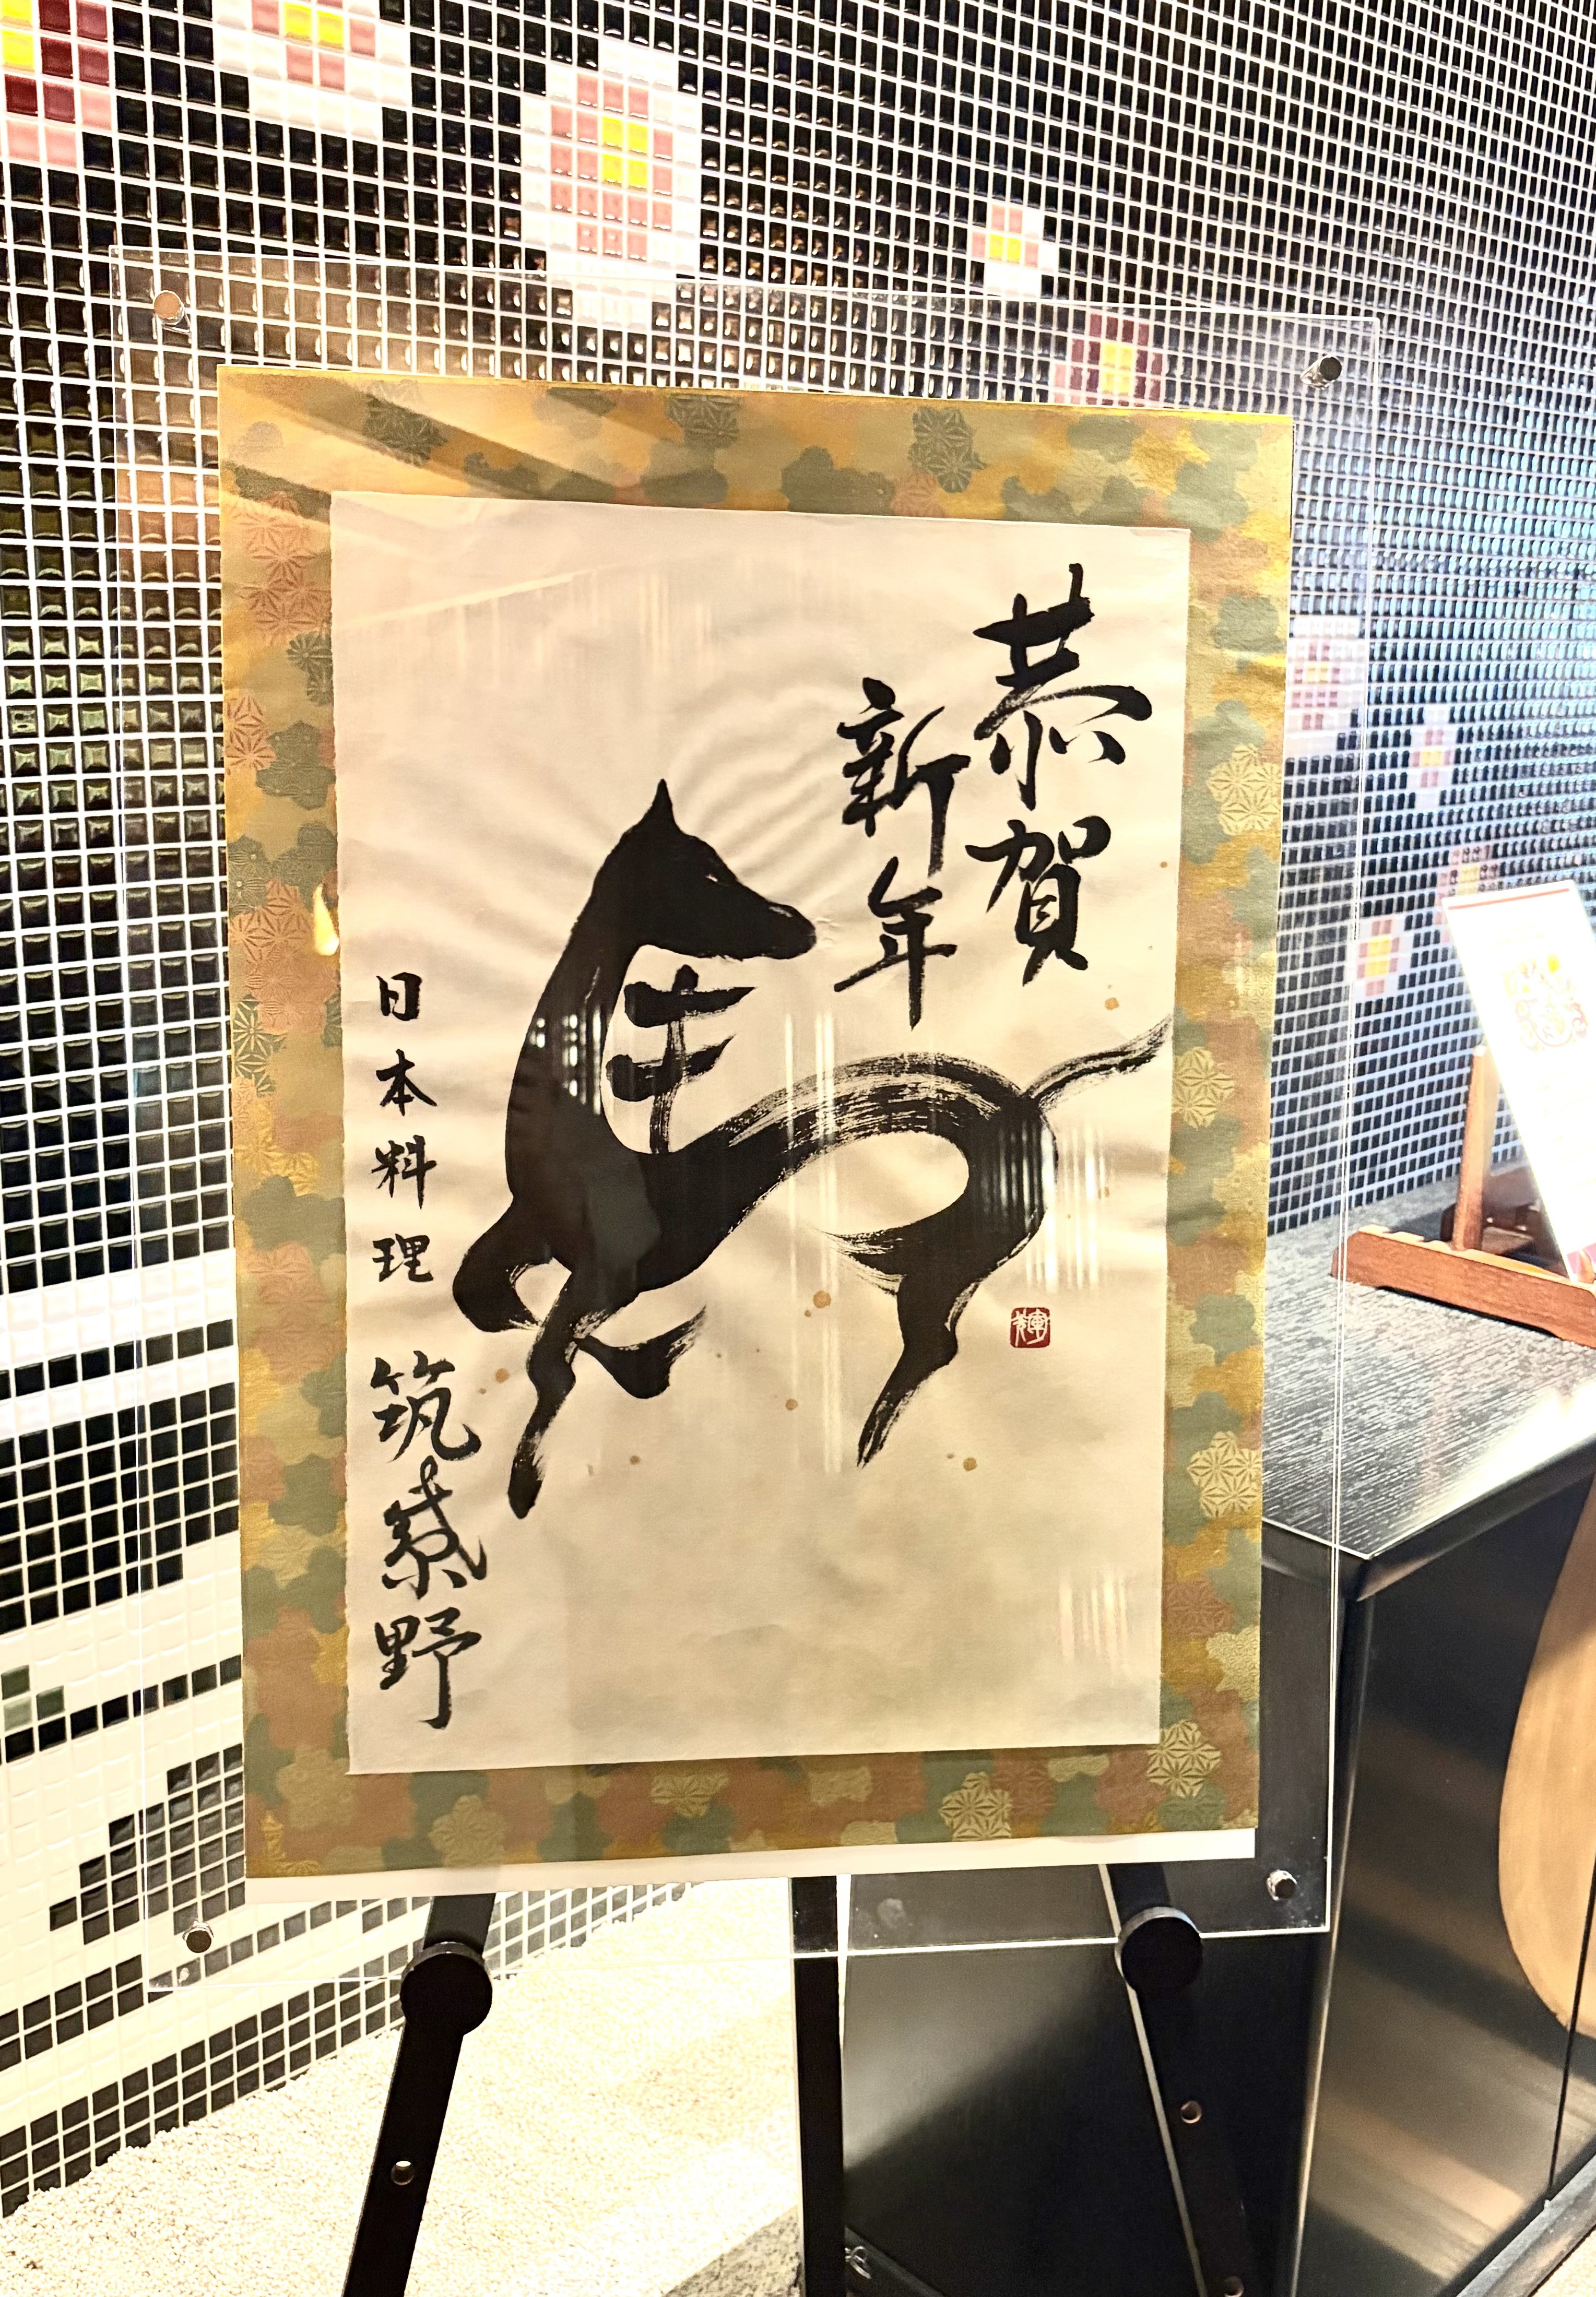 恭賀
新年
日本料理 筑紫野
輝